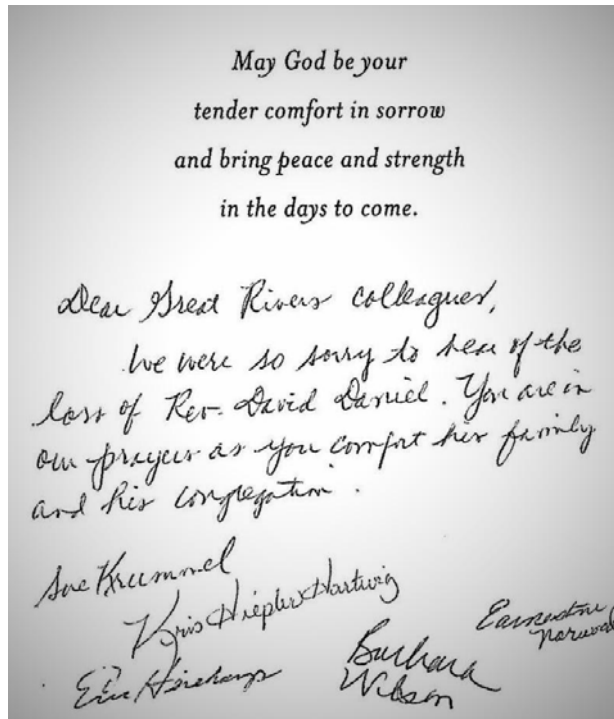 May God be your
tender comfort in sorrow
and bring peace and strength
in the days to come.
Dear Great Rivers colleagues,
We were so sorry to hear of the
loss of Rev. David Daniel. You are in
our prayers as you comfort his family
and his congregation.
Sue Krummel
Kris Hiepler Hartwig
Barbara
Wilson
Earnestine
Norwood